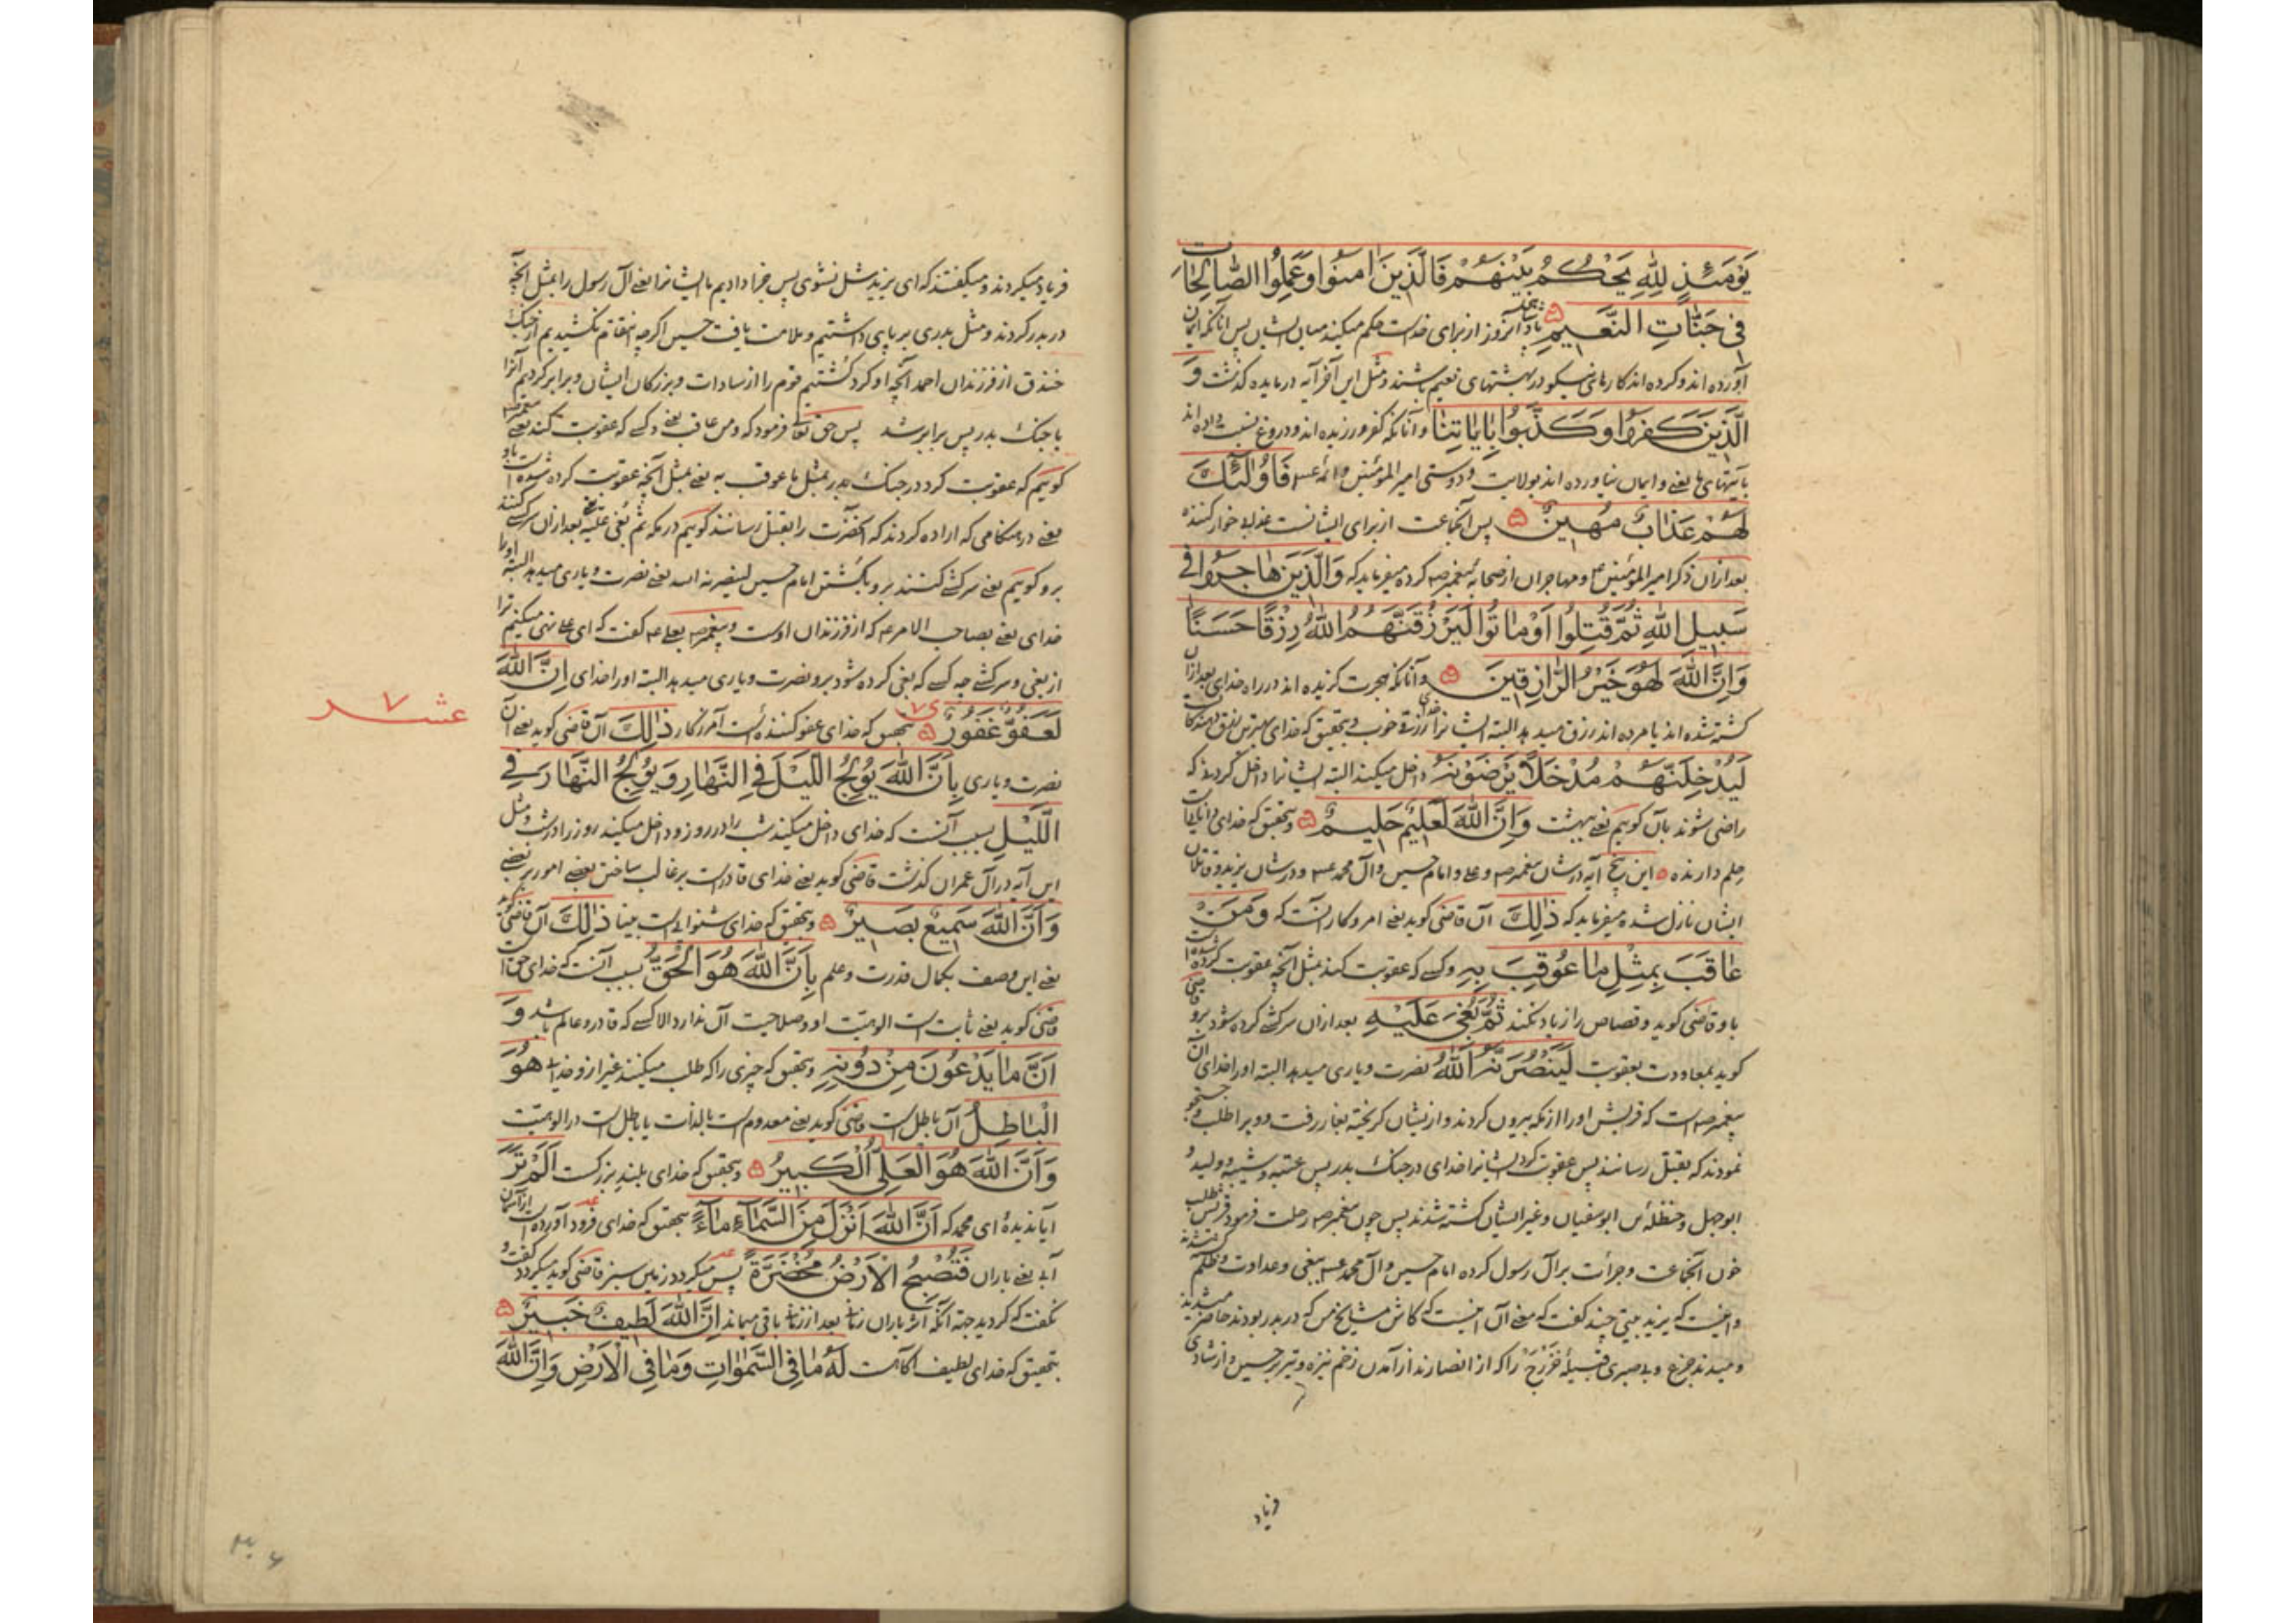 يَوْمَئِذٍ لِلّٰهِ يَحْكُمُ بَيْنَهُمْ فَالَّذِينَ اٰمَنُوا وَعَمِلُوا الصَّالِحَاتِ
فِي جَنَّاتِ النَّعِيمِ پادشاهی آنروز از برای خداست حکم میکند میان ایشان پس آنانکه ایمان
آورده اند و کرده اند کارهای نیکو در بهشتهای نعیم باشند و مثل این آخر آیه در مایده گذشت وَ
الَّذِينَ كَفَرُوا وَكَذَّبُوا بِاٰيَاتِنَا و آنانکه کفر ورزیده اند و دروغ نسبت داده اند
بآیتهای ما یعنی و ایمان نیاورده اند بولایت و دوستی امیر المؤمنین و ائمه ع فَاُولٰئِكَ
لَهُمْ عَذَابٌ مُهِينٌ پس آنجماعت از برای ایشانست عذاب خوار کننده
بعد ازان ذکر امیر المؤمنین و مهاجران از صحابه پیغمبر ص کرده میفرماید که وَالَّذِينَ هَاجَرُوا فِي
سَبِيلِ اللّٰهِ ثُمَّ قُتِلُوا اَوْ مَاتُوا لَيَرْزُقَنَّهُمُ اللّٰهُ رِزْقًا حَسَنًا
وَاِنَّ اللّٰهَ لَهُوَ خَيْرُ الرَّازِقِينَ و آنانکه هجرت گزیده اند در راه خدای بعد ازان
کشته شده اند یا مرده اند رزق میدهد البته ایشانرا خدای رزق خوب و بتحقیق که خدای بهترین رزق دهندگان
لَيُدْخِلَنَّهُمْ مُدْخَلًا يَرْضَوْنَهُ داخل میکند البته ایشانرا داخل کردنی که
راضی شوند بآن گوییم یعنی بهشت وَاِنَّ اللّٰهَ لَعَلِيمٌ حَلِيمٌ و بتحقیق که خدای دانا
حلم دارنده این پنج آیه در شان پیغمبر ص و علی و امام حسین و آل محمد ع و در شان یزید و قاتلان
ایشان نازل شده میفرماید که ذٰلِكَ آن قاضی گوید یعنی امر و کار آنست که وَمَنْ
عَاقَبَ بِمِثْلِ مَا عُوقِبَ بِهِ و کسی که عقوبت کند بمثل آنچه عقوبت کرده شده
باو قاضی گوید و قصاص را زیاد نکند ثُمَّ بُغِيَ عَلَيْهِ بعد ازان سرکشی کرده شود برو قاضی
گوید بمعاودت بعقوبت لَيَنْصُرَنَّهُ اللّٰهُ نصرت و یاری میدهد البته او را خدای آن
پیغمبر ص است که قریش او را از مکه بیرون کردند و از ایشان گریخته بغار رفت و ویرا طلب و جستجو
نمودند که بقتل رسانند پس عقوبت کرد ایشانرا خدای در جنک بدر پس عتبه و شیبه و ولید و
ابوجهل و حنظله بن ابوسفیان و غیر ایشان کشته شدند پس چون پیغمبر ص رحلت فرمود طلب
خون آنجماعت و جرأت بر آل رسول کرده امام حسین و آل محمد ع ببغی و عداوت و ظلم
و اینست که یزید بیتی چند گفت که معنی آن اینست که کاش مشایخ من که در بدر بودند حاضر میشدند
و میدیدند جزع و بی صبری قبیله خزرج را که از انصارند از آمدن زخم نیزه و تیر بر حسین و از شادی
فریاد
فریاد میکردند و میگفتند که ای یزید شل نشوی پس جزا دادیم ما ایشانرا یعنی آل رسول را بمثل آنچه
در بدر کردند و مثل بدری بر پای داشتیم و ملامت یافت حسین اگر چه انتقام نکشیدیم از جنک
خندق از فرزندان احمد آنچه او کرد کشتیم قوم را از سادات و بزرکان ایشان و برابر کردیم آنرا
با جنک بدر پس برابر شد پس حق تعالی فرمود که ومن عاقب یعنی و کسی که عقوبت کند یعنی پیغمبر ص
گوییم که عقوبت کرد در جنک بدر بمثل ما عوقب به یعنی بمثل آنچه عقوبت کرده شده است باو
یعنی در هنکامی که اراده کردند که آنحضرت را بقتل رسانند گوییم در مکه ثم بغی علیه یعنی بعد ازان سرکشی کنند
برو گوییم یعنی سرکشی کنند برو بکشتن امام حسین لینصرنه الله یعنی نصرت و یاری میدهد البته او را
خدای یعنی بصاحب الامر ع که از فرزندان اوست و پیغمبر ص بعلی ع گفت که ای علی نهی میکنیم ترا
از بغی و سرکشی چه کسی که بغی کرده شود برو نصرت و یاری میدهد البته او را خدای اِنَّ اللّٰهَ
لَعَفُوٌّ غَفُورٌ بتحقیق که خدای عفو کننده است آمرزکار ذٰلِكَ آن قاضی گوید یعنی آن
عشر ٧
نصرت و یاری بِاَنَّ اللّٰهَ يُولِجُ اللَّيْلَ فِي النَّهَارِ وَيُولِجُ النَّهَارَ فِي
اللَّيْلِ بسبب آنست که خدای داخل میکند شب را در روز و داخل میکند روز را در شب و مثل
این آیه در آل عمران گذشت قاضی گوید یعنی خدای قادر است بر غالب ساختن بعضی امور بر بعضی
وَاَنَّ اللّٰهَ سَمِيعٌ بَصِيرٌ و بتحقیق که خدای شنوا است بینا ذٰلِكَ آن قاضی گوید
یعنی این وصف بکمال قدرت و علم بِاَنَّ اللّٰهَ هُوَ الْحَقُّ بسبب آنست که خدای حق است
قاضی گوید یعنی ثابت است الوهیّت او و صلاحیت آن ندارد الا کسی که قادر و عالم باشد وَ
اَنَّ مَا يَدْعُونَ مِنْ دُونِهِ و بتحقیق که چیزی را که طلب میکنند غیر از و خدای هُوَ
الْبَاطِلُ آن باطل است قاضی گوید یعنی معدوم است بالذات یا باطل است در الوهیّت
وَاَنَّ اللّٰهَ هُوَ الْعَلِيُّ الْكَبِيرُ و بتحقیق که خدای بلند بزرکست اَلَمْ تَرَ
آیا ندیدهٔ ای محمد که اَنَّ اللّٰهَ اَنْزَلَ مِنَ السَّمَاءِ مَاءً بتحقیق که خدای فرود آورده است از آسمان
آبی یعنی باران فَتُصْبِحُ الْاَرْضُ مُخْضَرَّةً پس میکردد زمین سبز قاضی گوید میکردد گفت و
نگفت که کردید جهة آنکه اثر باران زمانی بعد از زمانی باقی میماند اِنَّ اللّٰهَ لَطِيفٌ خَبِيرٌ
بتحقیق که خدای لطیف آگاهست لَهُ مَا فِي السَّمٰوَاتِ وَمَا فِي الْاَرْضِ وَاِنَّ اللّٰهَ